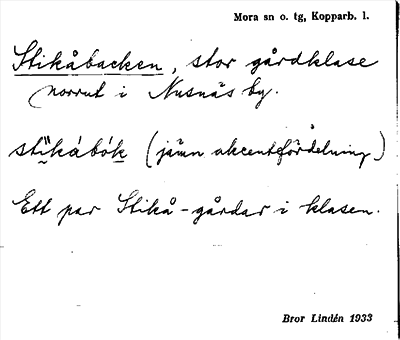 Mora sn o. tg, Kopparb. l.
Stikåbacken, stor gårdklase
norrut i Nusnäs by.
(jämn akcentfördelning)
Ett par Stikå-gårdar i klasen.
Bror Lindén 1933